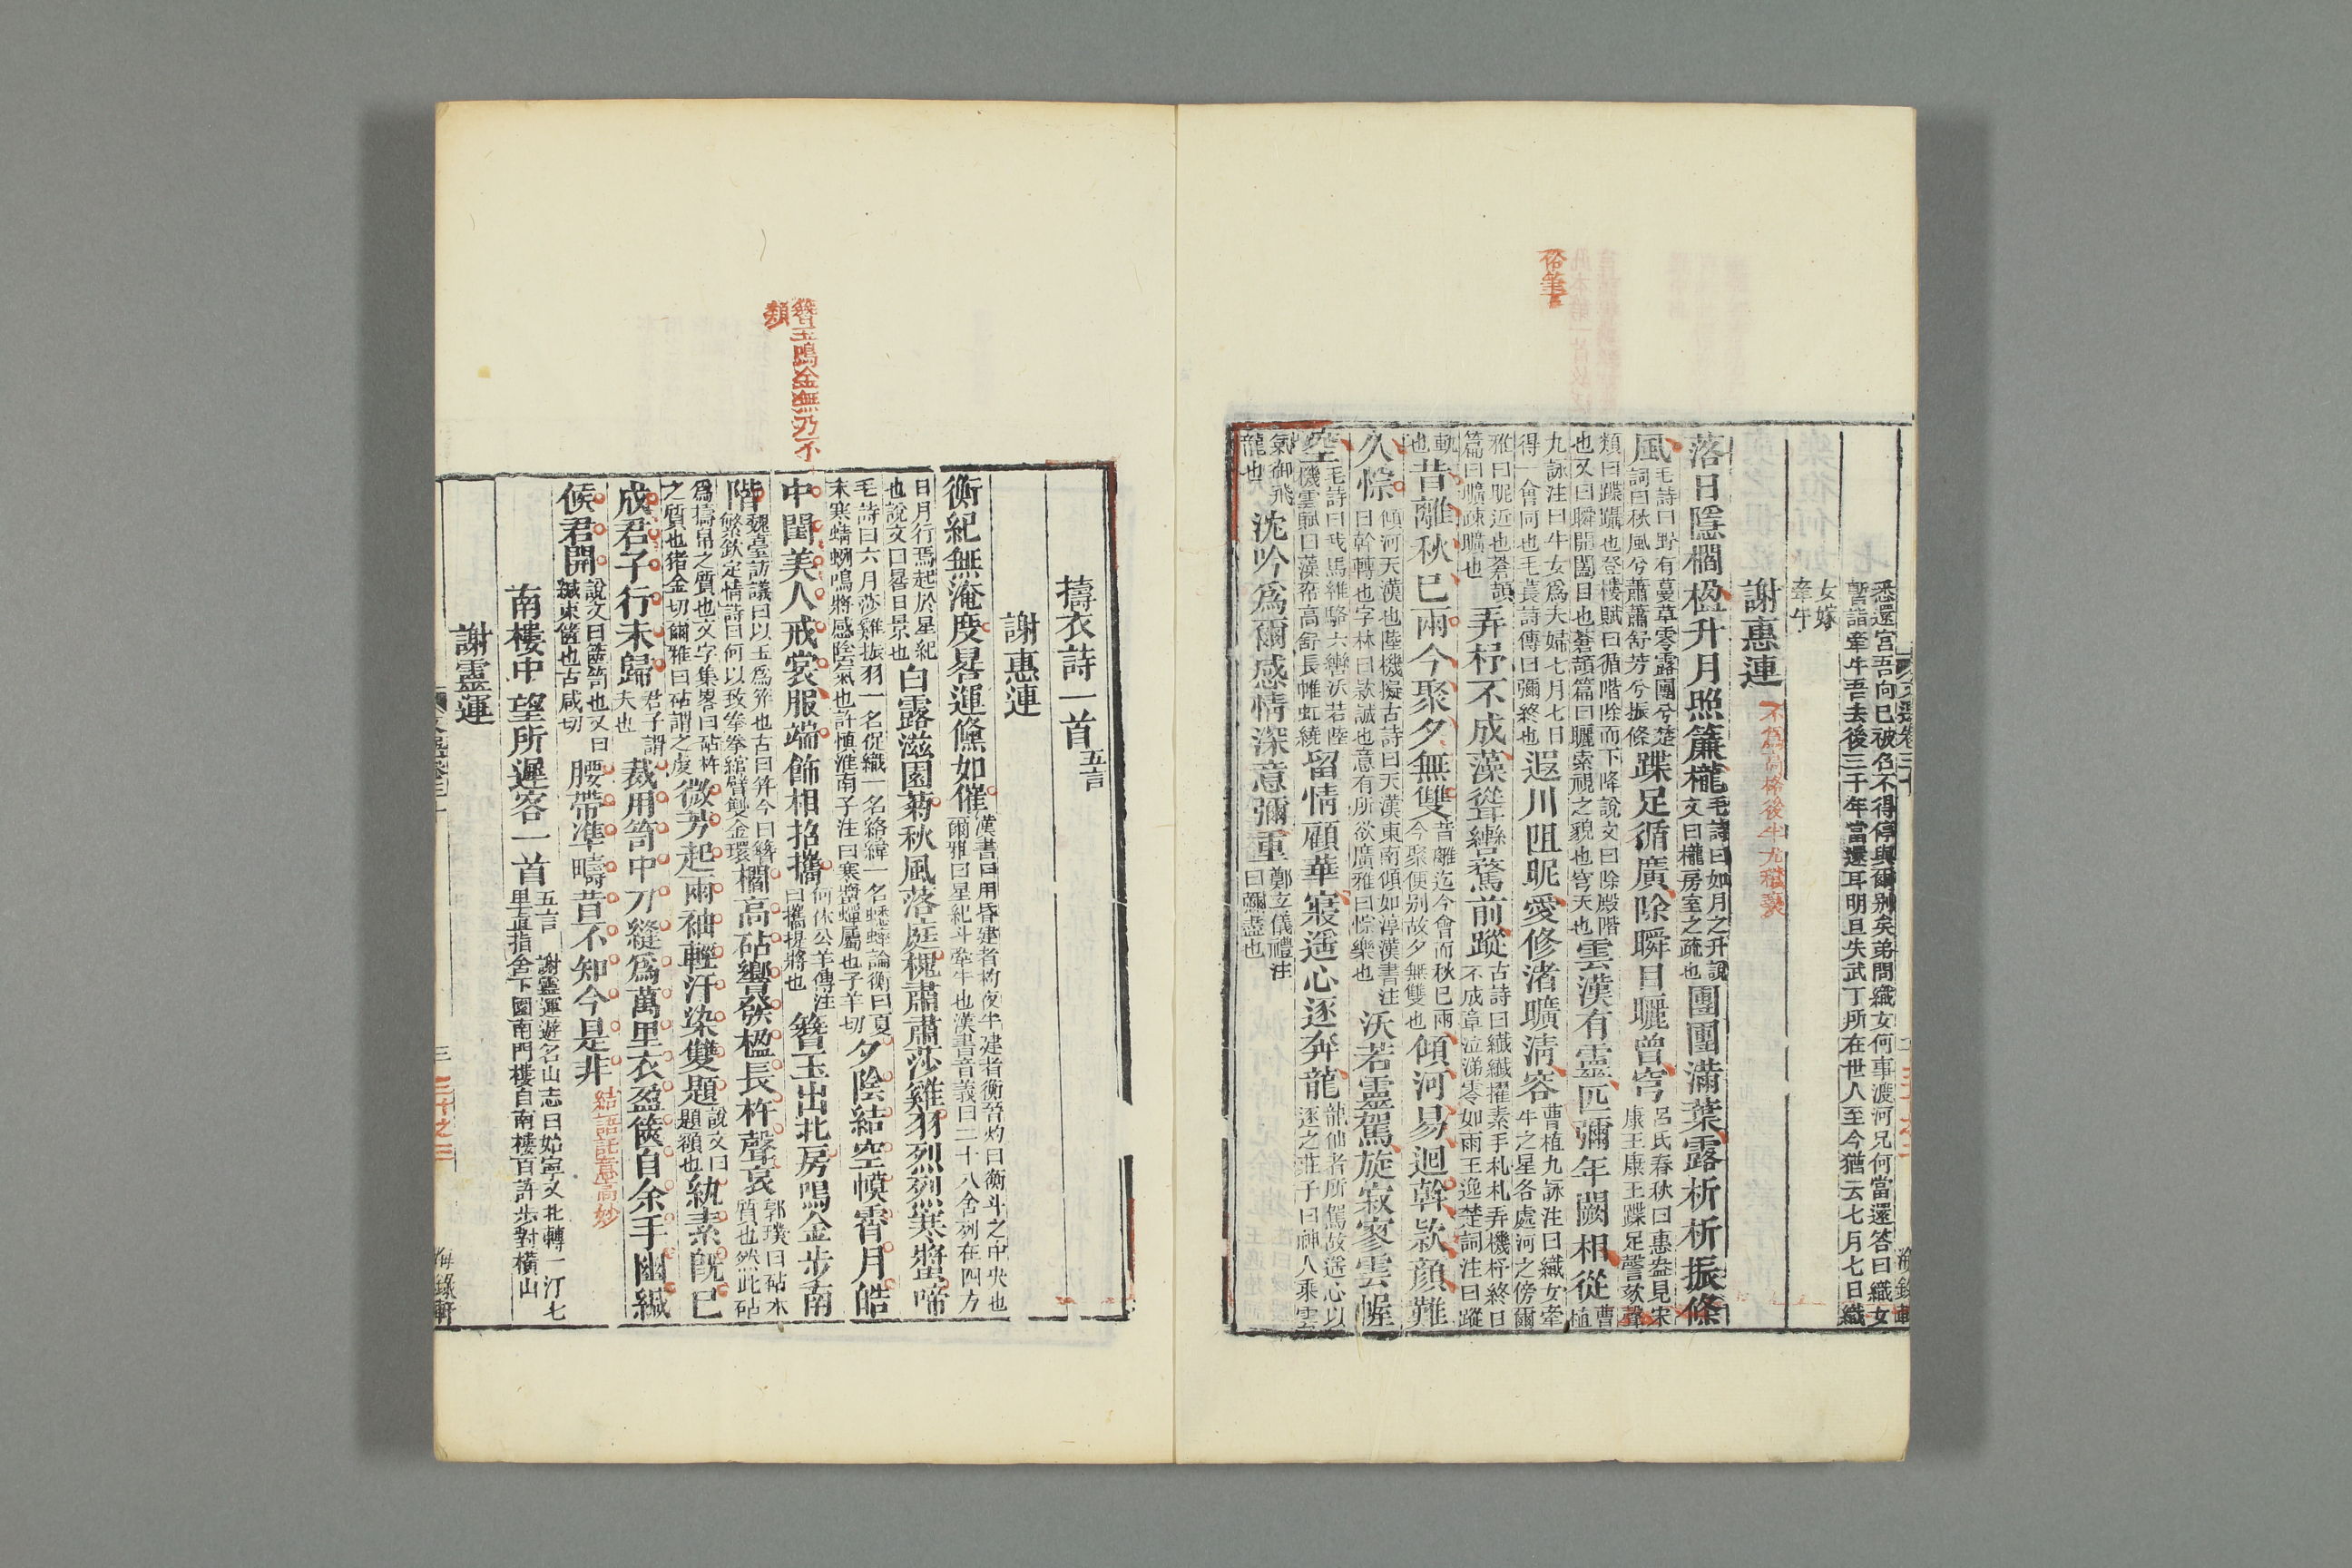 文選卷三十
海錄軒
悉還宮吾向已被召不得停與爾别矣弟問織女何事渡河兄何當還答曰織女
暫詣牽牛吾去後三千年當還耳明旦失武丁所在世人至今猶云七月七日織
女嫁
牽牛
謝惠連
不為高格後半尤穠褻
俗筆
落日隱櫩楹升月照簾櫳毛詩曰如月之升說文曰櫳房室之疏也團團滿葉露析析振條
風毛詩曰野有蔓草零露團兮楚詞曰秋風兮蕭蕭舒芳兮振條蹀足循廣除瞬目矖曾穹呂氏春秋曰惠盎見宋康王康王蹀足謦欬聲
類曰蹀躡也登樓賦曰循階除而下降說文曰除殿階也又曰瞬開闔目也蒼頡篇曰矖索視之貌也穹天也雲漢有靈匹彌年闕相從曹植
九詠注曰牛女爲夫婦七月七日得一會同也毛萇詩傳曰彌終也遐川阻昵愛修渚曠清容曹植九詠注曰織女牽牛之星各處河之傍爾
雅曰昵近也蒼頡篇曰曠疎曠也弄杼不成藻聳轡鶩前蹤古詩曰纖纖擢素手札札弄機杼終日不成章泣涕零如雨王逸楚詞注曰蹤
軌也昔離秋已兩今聚夕無雙昔離迄今會而秋已兩今聚便别故夕無雙也傾河易迴斡欵顔難
久悰傾河天漢也陸機擬古詩曰天漢東南傾如淳漢書注曰斡轉也字林曰欵誠也意有所欲廣雅曰悰樂也沃若靈駕旋寂寥雲幄
空毛詩曰我馬維駱六轡沃若陸機雲賦曰藻帟高舒長帷虹繞留情顧華寢遥心逐奔龍龍仙者所駕故遥心以逐之莊子曰神人乘雲
氣御飛龍也沈吟爲爾感情深意彌重鄭玄儀禮注曰彌盡也
擣衣詩一首五言
謝惠連
衡紀無淹度晷運倐如催漢書曰用昏建者杓夜半建者衡晉灼曰衡斗之中央也爾雅曰星紀斗牽牛也漢書音義曰二十八舍列在四方
日月行焉起於星紀也說文曰晷日景也白露滋園菊秋風落庭槐肅肅莎雞羽烈烈寒螿啼
毛詩曰六月莎雞振羽一名促織一名絡緯一名蟋蟀論衡曰夏末寒蜻蛚鳴將感陰氣也許慎淮南子注曰寒螿蟬屬也子羊切夕陰結空幙霄月皓
中閨美人戒裳服端飾相招攜何休公羊傳注曰攜提將也簪玉出北房鳴金步南
簪玉鳴金無乃不
類
階魏臺訪議曰以玉爲笄也古曰笄今曰簪繁欽定情詩曰何以致拳拳綰臂雙金環櫩高砧響發楹長杵聲哀郭璞曰砧木質也然此砧
爲擣帛之質也文字集畧曰砧杵之質也猪金切爾雅曰砧謂之虔微芳起兩袖輕汗染雙題說文曰題額也紈素旣已
成君子行未歸君子謂夫也裁用笥中刀縫爲萬里衣盈篋自余手幽緘
候君開說文曰篋笥也又曰緘束篋也古咸切腰帶準疇昔不知今是非
結語託意高妙
南樓中望所遲客一首五言 謝靈運遊名山志曰始寧又北轉一汀七里直指舍下園南門樓自南樓百許步對橫山
謝靈運
文選卷三十
三
三十之三
海錄軒